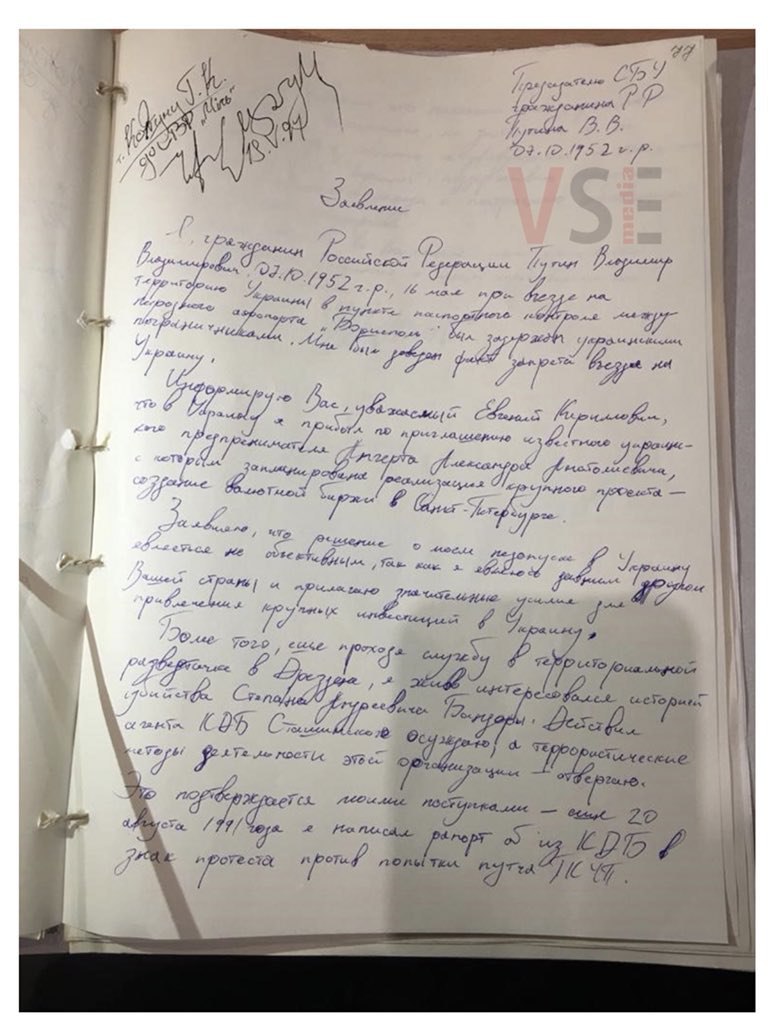 77
т. Ковтуну Г. К.
до СЗР "Міть"
13.V.97
Председателю СБУ
гражданина РФ
Путина В. В.
07.10.1952 г.р.
VSE
media
Заявление
Я, гражданин Российской Федерации Путин Владимир
Владимирович. 07.10.1952 г.р., 16 мая при въезде на
территорию Украины в пункте паспортного контроля между
народного аэропорта "Борисполь" был задержан украинскими
пограничниками. Мне был доведен факт запрета въезда на
Украину.
Информирую Вас, уважаемый Евгений Кирилович,
что в Украину я прибыл по приглашению известного украин-
ского предпринимателя Ангерта Александра Анатолиевича,
с которым запланирована реализация крупного проекта —
создание валютной биржи в Санкт-Питербурге.
Заявляю, что решение о моем недопуске в Украину
евляется не объективным, так как я евляюсь давним другом
Вашей страны и прилагаю значительные усилия для
привлечения крупных инвестиций в Украину.
Более того, еще проходя службу в территориальной
разведточке в Дрездене, я живо интересовался историей
убийства Степана Андреевича Бандеры. Действия
агента КДБ Сташинского осуждаю, а террористические
методы деятельности этой организации — отвергаю.
Это подтверждается моими поступками — еще 20
августа 1991 года я написал рапорт об из КДБ в
знак протеста против попытки путча ГКЧП.